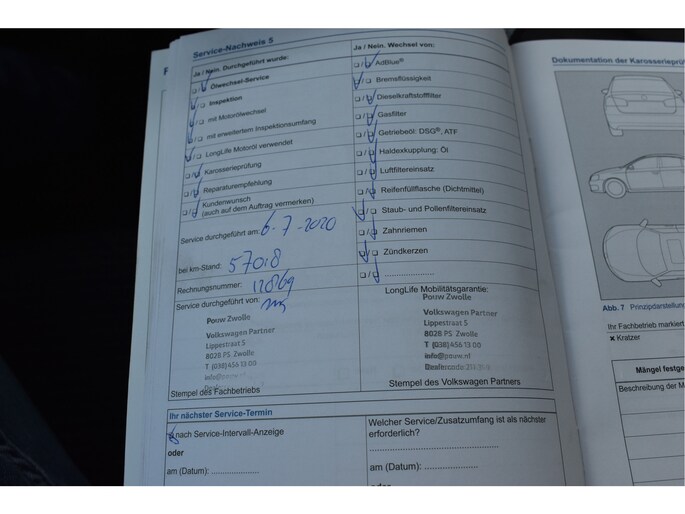 Service-Nachweis 5
Ja / Nein. Durchgeführt wurde:
Ölwechsel-Service
Inspektion
mit Motorölwechsel
mit erweitertem Inspektionsumfang
LongLife Motoröl verwendet
Karosserieprüfung
Reparaturempfehlung
Kundenwunsch
(auch auf dem Auftrag vermerken)
Service durchgeführt am: 6-7-2020
bei km-Stand: 57018
Rechnungsnummer:
Service durchgeführt von:
Pouw Zwolle
Volkswagen Partner
Lippestraat 5
8028 PS Zwolle
T (038) 456 13 00
info@pouw.nl
Stempel des Fachbetriebs
Ja / Nein. Wechsel von:
AdBlue®
Bremsflüssigkeit
Dieselkraftstofffilter
Gasfilter
Getriebeöl: DSG®, ATF
Haldexkupplung: Öl
Luftfiltereinsatz
Reifenfüllflasche (Dichtmittel)
Staub- und Pollenfiltereinsatz
Zahnriemen
Zündkerzen
....................
LongLife Mobilitätsgarantie:
Pouw Zwolle
Volkswagen Partner
Lippestraat 5
8028 PS Zwolle
T (038) 456 13 00
info@pouw.nl
Stempel des Volkswagen Partners
Ihr nächster Service-Termin
nach Service-Intervall-Anzeige
oder
am (Datum): ....................
Welcher Service/Zusatzumfang ist als nächster
erforderlich?
am (Datum): ....................
oder
Dokumentation der Karosserieprü
Abb. 7 Prinzipdarstellung
Ihr Fachbetrieb markiert
× Kratzer
Mängel festge
Beschreibung der M